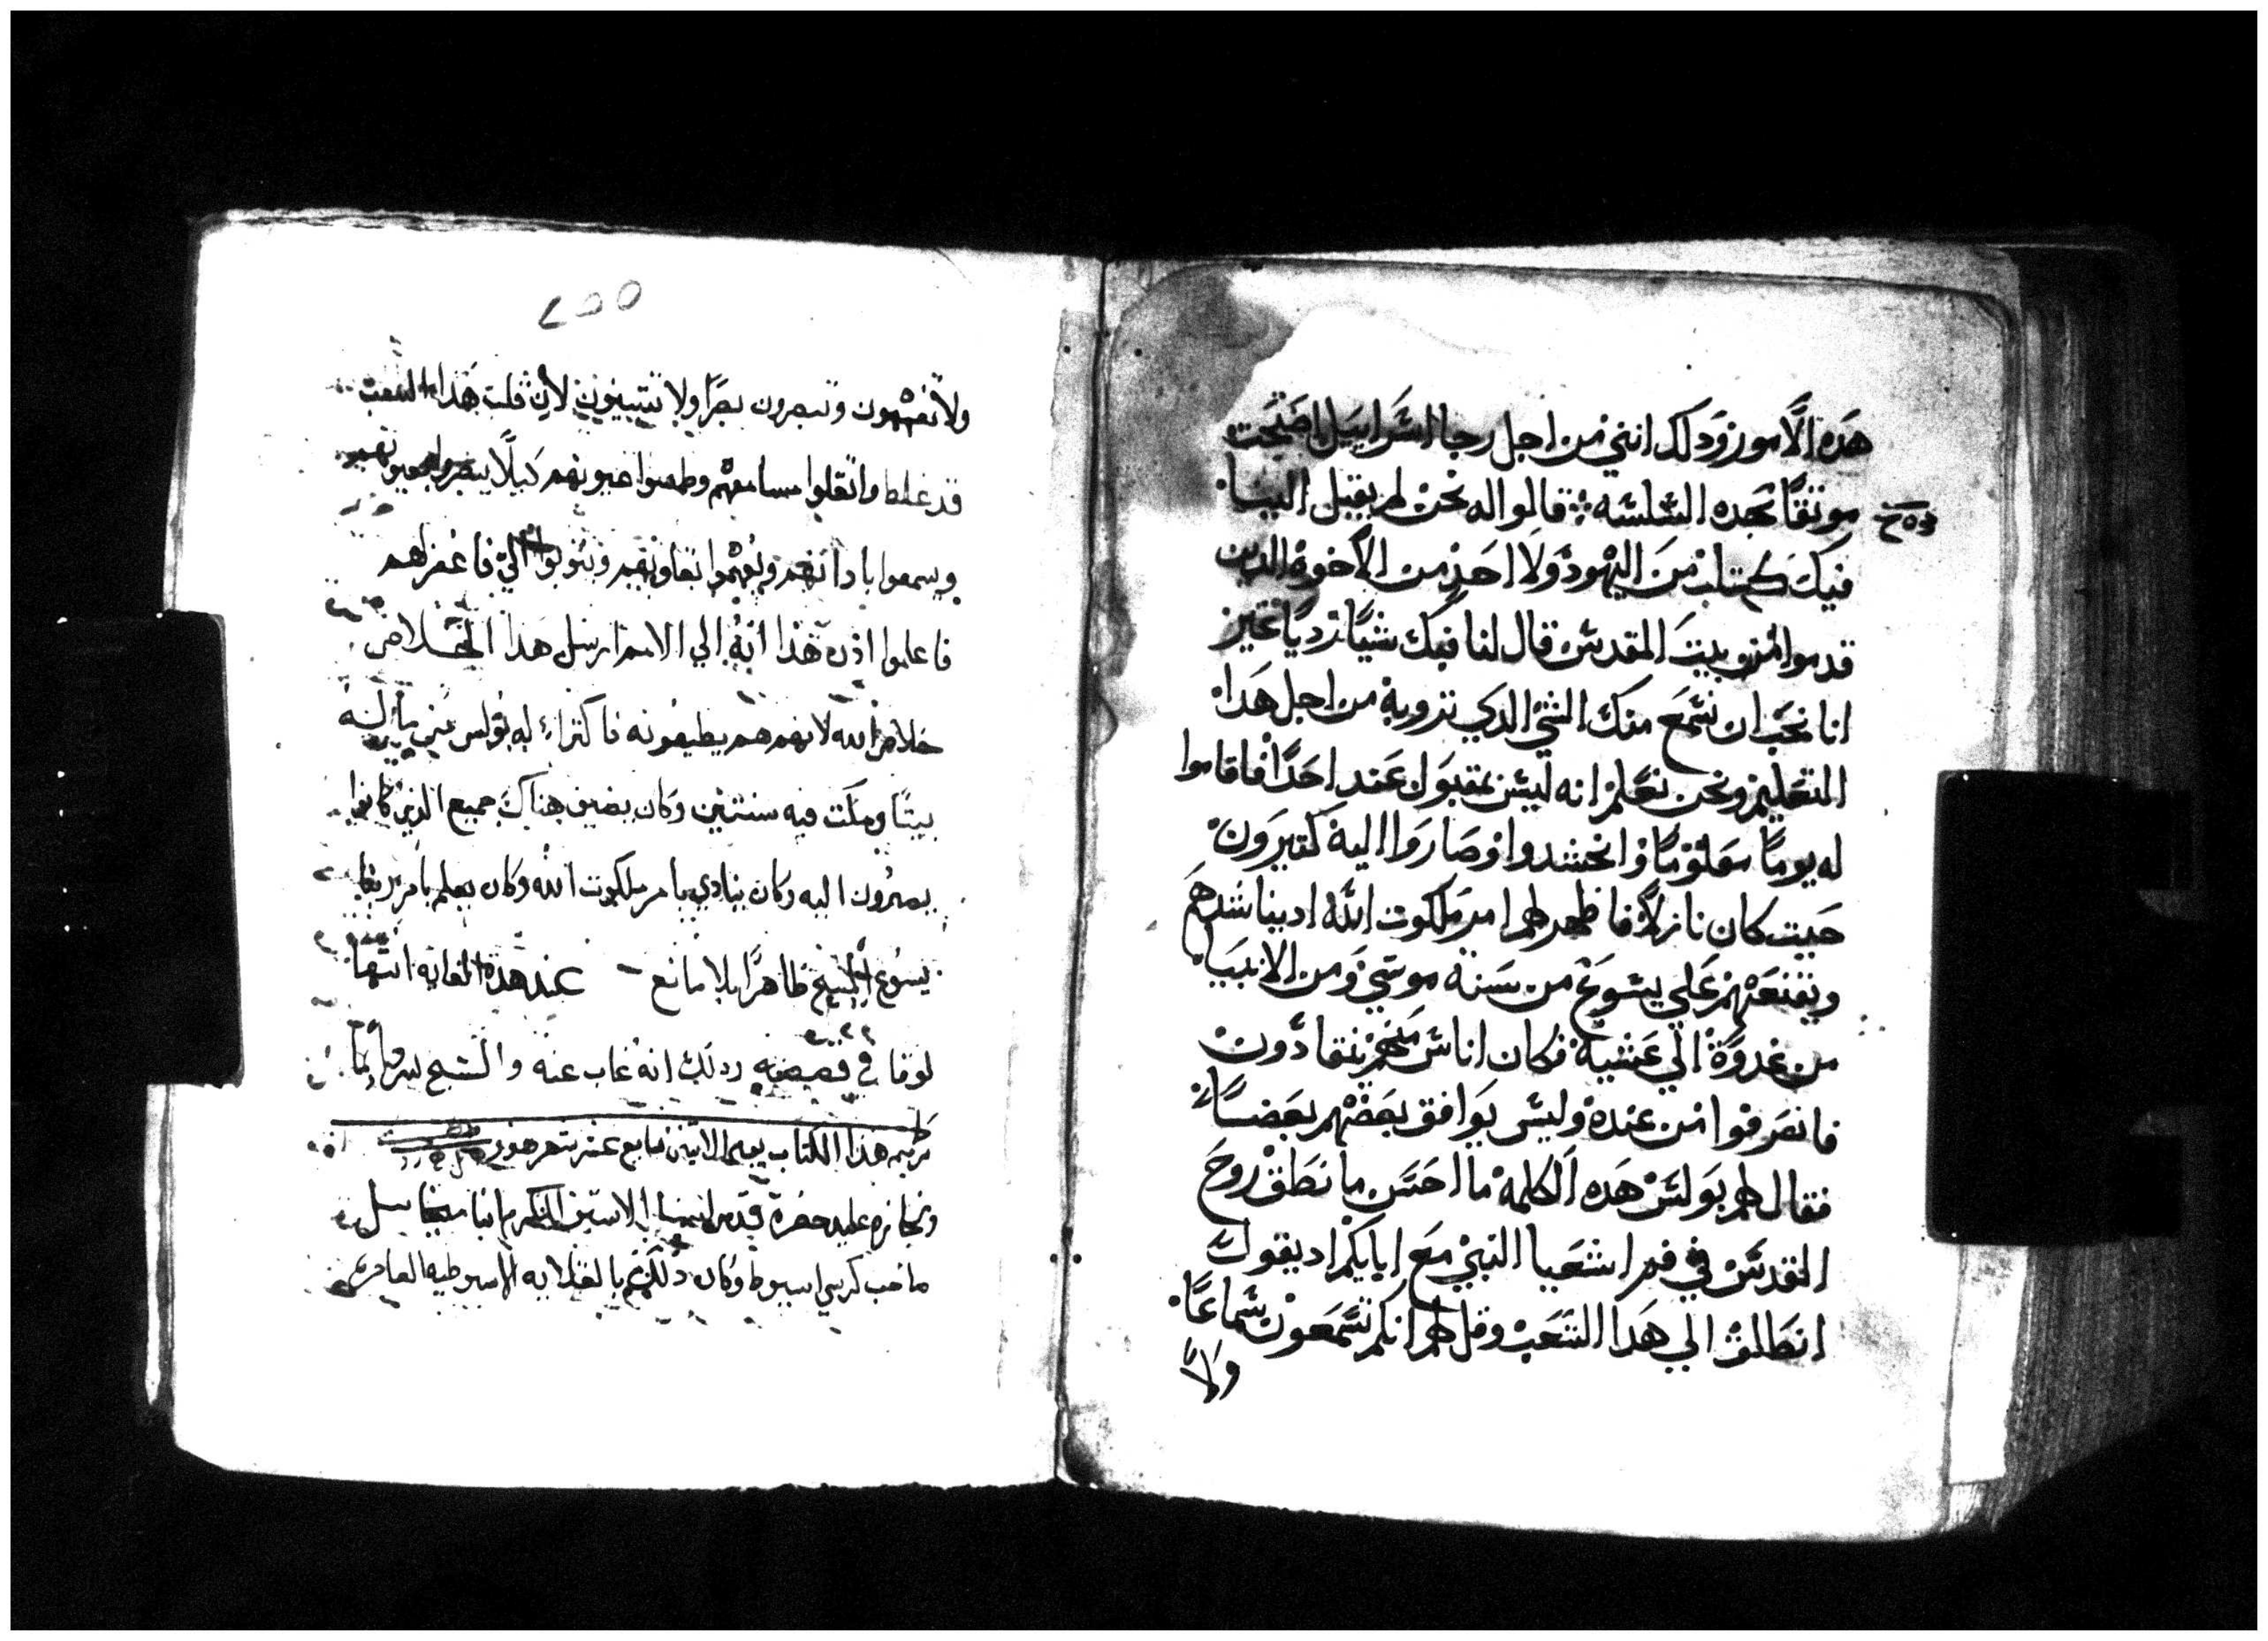 هذه الامور وذلك انني من اجل رجا اسرايل اصبحت
موتقا بهده السلسه قالوا له نحن لم يقبل الينا
فيك كتاب من اليهود ولا احد من الاخوة الدين
قدموا من بيت المقدس قال لنا فيك شيا رديا غير
انا نحب ان نسمع منك الشي الدي ترويه من اجل هدا
التعليم ونحن نعلم انه ليس بمقبول عند احدا فاقاموا
له يوما معلوما وانحشدوا وصاروا اليه كتيرون
حيت كان نازلا فاظهر لهم امر ملكوت الله اد يناشدهم
ويقنعهم علي يسوع من سنة موسي ومن الانبيا
من غدوة الي عشية فكان اناس منهم ينقادون
فانصرفوا من عنده وليس يوافق بعضهم بعضا
فقال لهم بولس هده الكلمه ما احسن ما نطق روح
القدس في فم اشعيا النبي مع ابايكم اد يقول
انطلق الي هدا الشعب وقل لهم انكم تسمعون سماعا
ولا
٢٥٥
ولا تفهمون وتبصرون بصرا ولا تتبينون لان قلب هذا الشعب
قد غلط واتقلوا مسامعهم وطمسوا عيونهم كيلا يبصروا بعيونهم
ويسمعوا باذانهم ويفهموا بقلوبهم ويتوبوا الي فاغفر لهم
فاعلموا اذن هذا انه الي الامم ارسل هذا الخلاص
خلاص الله لانهم هم يطيعونه فاكترا له بولس من ماله
بيتا ومكت فيه سنتين وكان يضيف هناك جميع الذين كانوا
يصيرون اليه وكان ينادي بامر ملكوت الله وكان يعلم بامر ربنا
يسوع المسيح ظاهرا بلا مانع عند هذه الغايه انتها
لوقا في قصصه وذلك انه غاب عنه والشيخ
ترميم هذا الكتاب يوم الاتنين سابع عشر شهر هتور
حضرة قدس الاسقف المكرم انبا ميخاييل
صاحب كرسي اسيوط وكان ذلك بالقلايه الاسيوطيه العامره